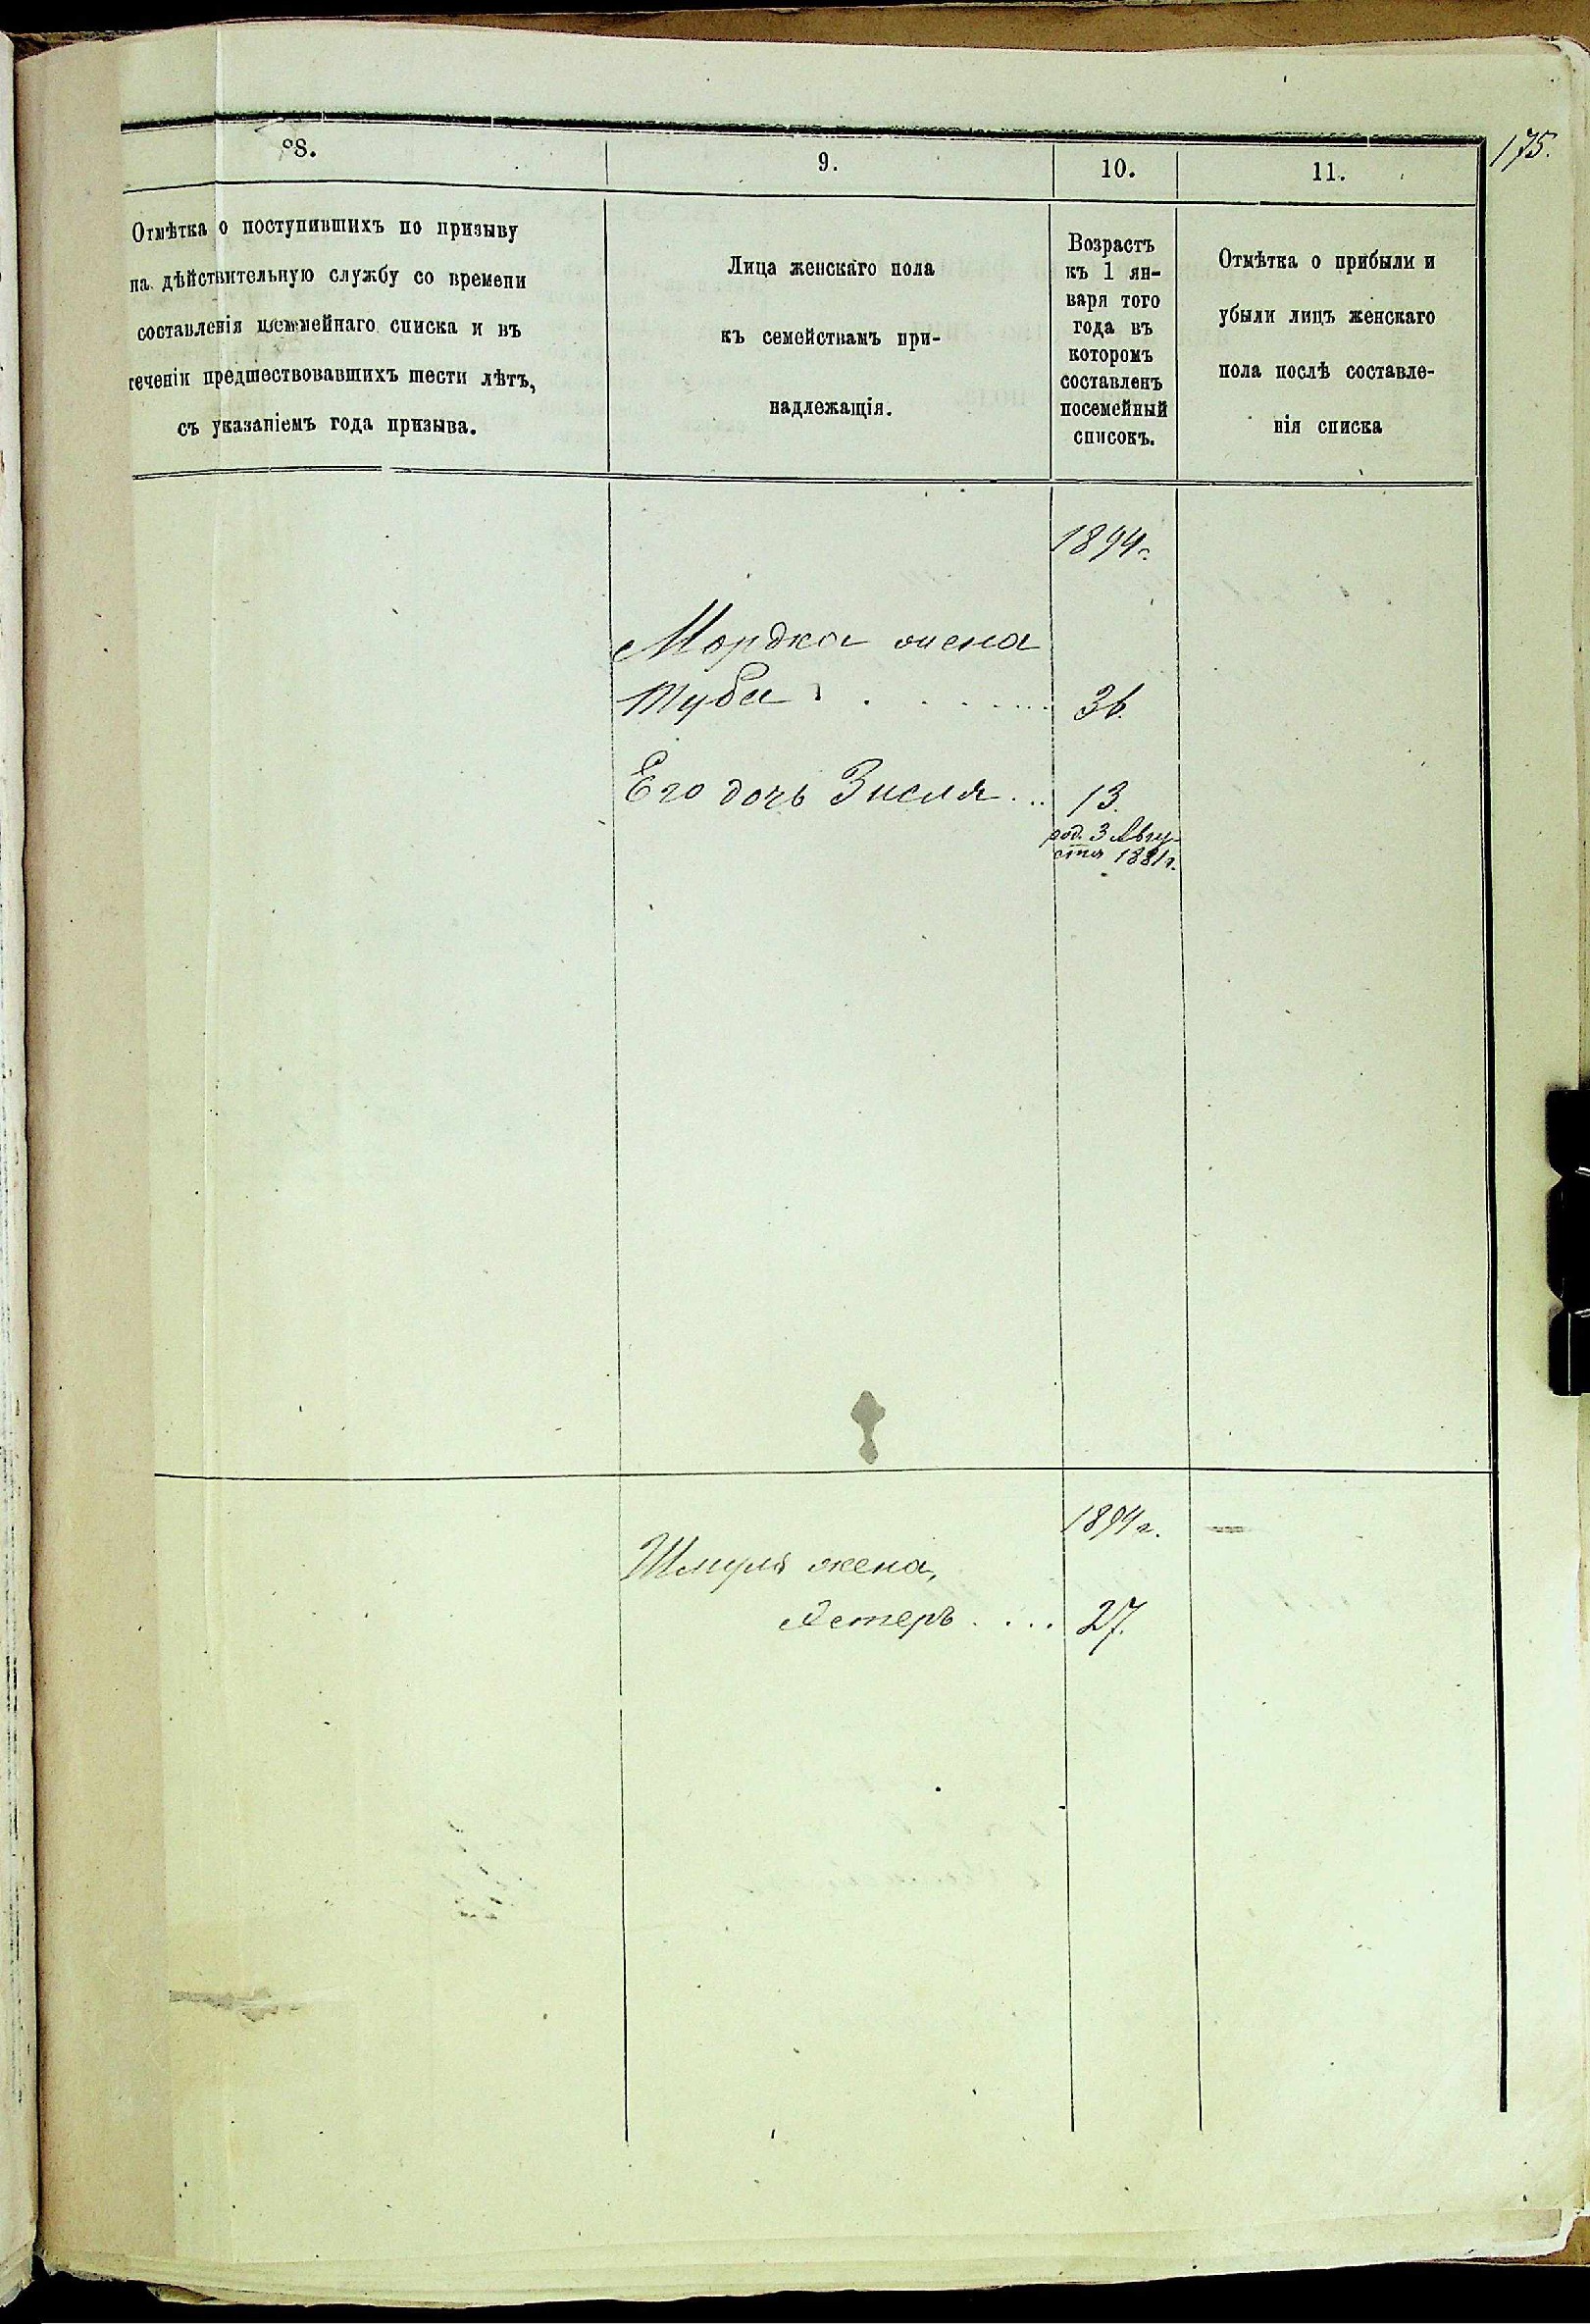 175.
8.
9.
10.
11.
Отмѣтка о поступившихъ по призыву
на дѣйствительную службу со времени
составленія посемейнаго списка и въ
теченіи предшествовавшихъ шести лѣтъ,
съ указаніемъ года призыва.
Лица женскаго пола
къ семействамъ при-
надлежащія.
Возрастъ
къ 1 ян-
варя того
года въ
которомъ
составленъ
посемейный
списокъ.
Отмѣтка о прибыли и
убыли лицъ женскаго
пола послѣ составле-
нія списка
1894г.
Мордка жена
Туба . . . . . 36.
Его дочь Зисля . . . 13.
род. 3 Авгу-
ста 1881г.
1894г.
Шмуля жена,
Эстеръ . . . . 27.